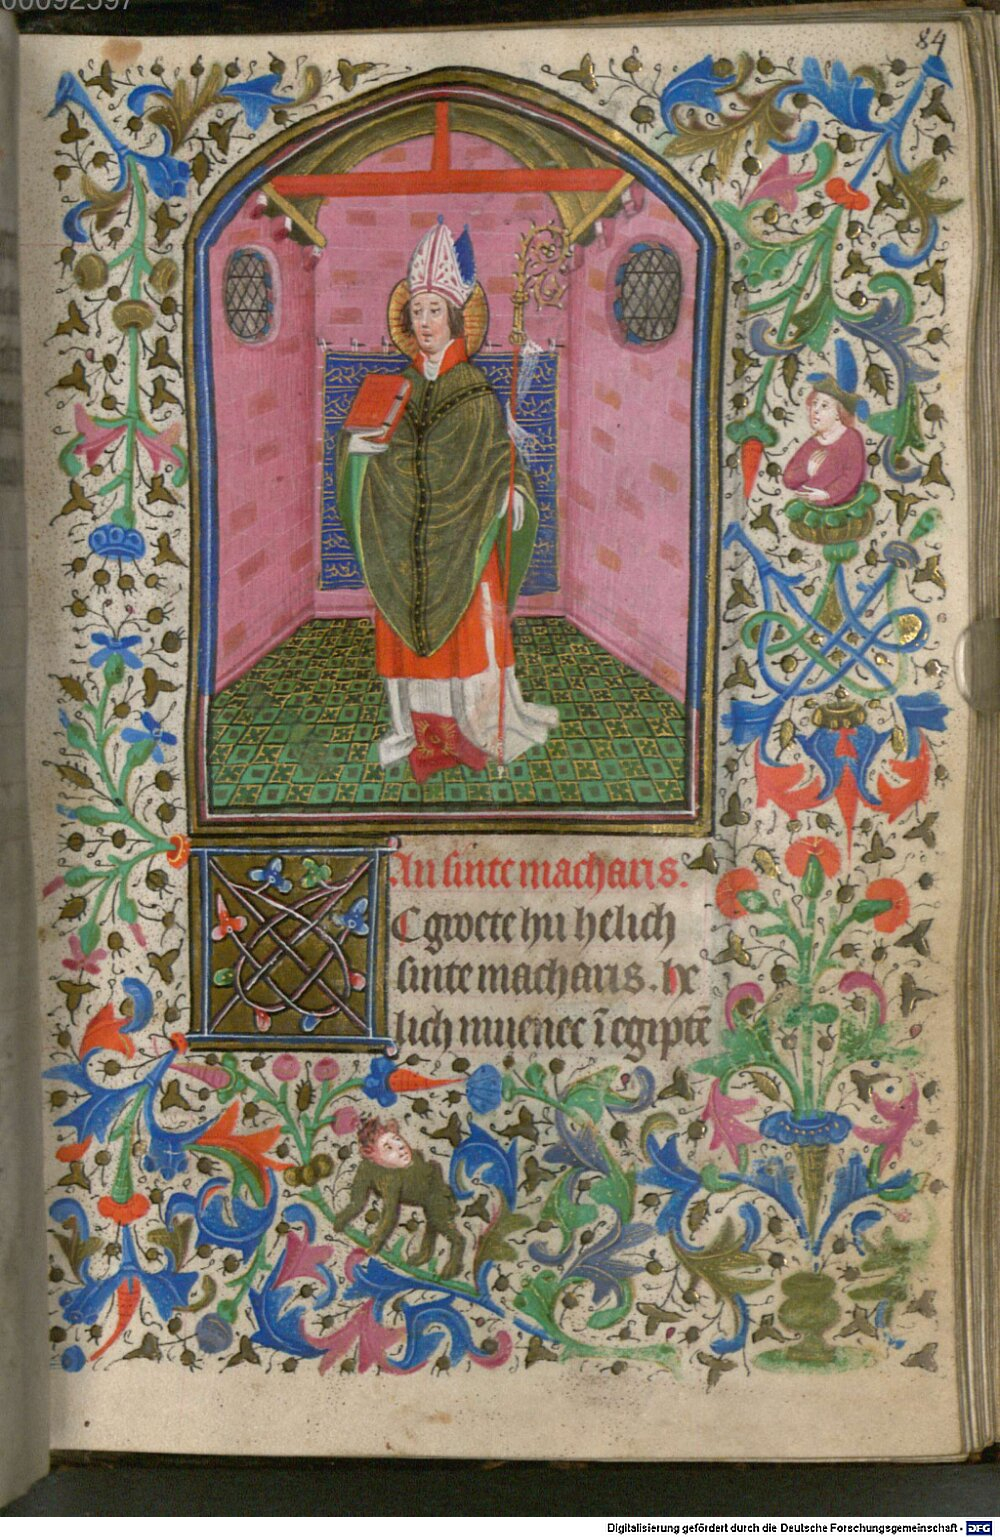 00092597
84
An sinte macharis.
IC grvete hu helich
sinte macharis. he
lich muenec ī egiptē
Digitalisierung gefördert durch die Deutsche Forschungsgemeinschaft - DFG